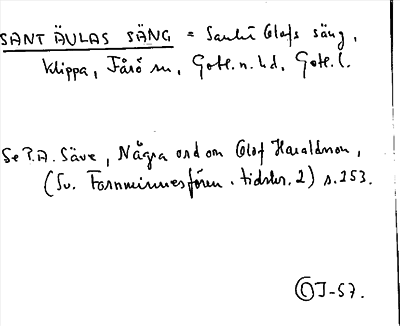 SANT ÄULAS SÄNG = Sankt Olofs säng,
klippa, Fårö sn, Gotl. n. hd, Gotl. l.
Se P.A. Säve, Några ord om Olof Haraldsson,
(Sv. Fornminnesfören. tidskr. 2) s. 253.
OJ-57.